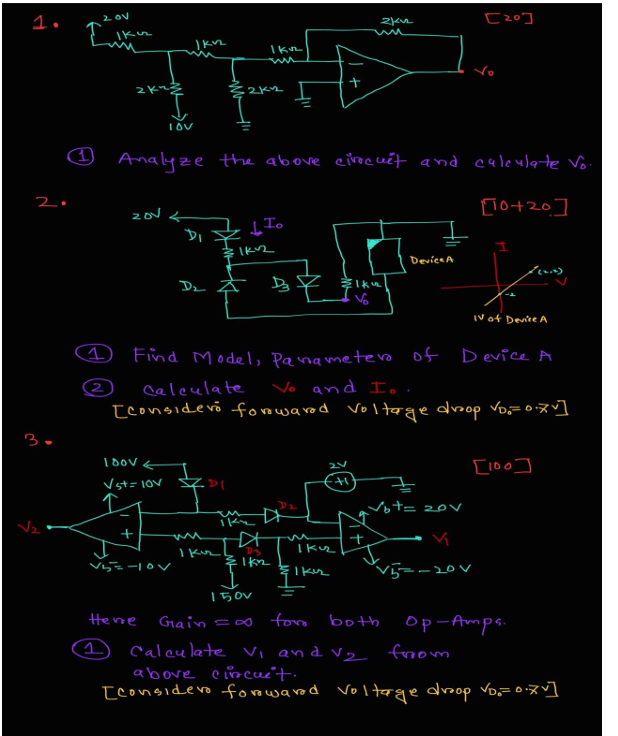 1.
20V
1KΩ
1KΩ
1KΩ
2KΩ
[20]
2KΩ
2KΩ
10V
-
+
Vo
① Analyze the above circuit and calculate Vo.
2.
[10+20]
20V
Io
D1
1KΩ
D2
D3
1KΩ
Vo
Device A
I
V
(2,2)
-2
IV of Device A
① Find Model, Parameters of Device A
② Calculate Vo and Io.
[consider forward voltage drop VDo=0.7V]
3.
[100]
100V
Vs+=10V
D1
2V
-+
D2
Vs+=20V
V2
-
+
1KΩ
1KΩ
D3
1KΩ
1KΩ
1KΩ
-
+
V1
Vs-=-10V
Vs-=-20V
150V
Here Gain=∞ for both Op-Amps.
① Calculate V1 and V2 from
above circuit.
[consider forward voltage drop VDo=0.7V]